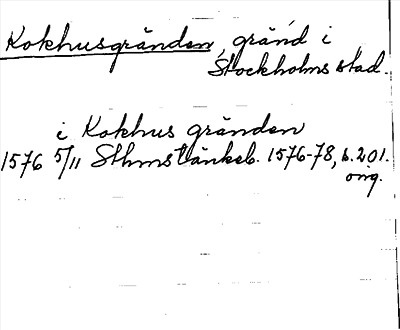 Kokhusgränden, gränd i
Stockholms stad.
i Kokhus gränden
1576 5/11 Sthms tänkeb. 1576-78, b. 201.
orig.